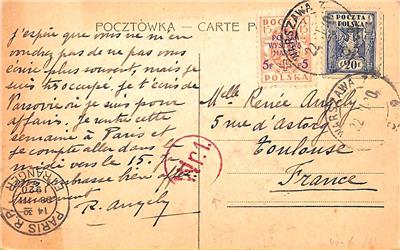 POCZTÓWKA — CARTE P
J'espère que vous ne m'en
voudrez pas de ne pas vous
écrire plus souvent, mais je
suis très occupé. Je t'écris de
Varsovie où je suis pour
affaires. Je rentre cette
semaine à Paris et
je compte aller dans le
midi vers le 15. Je
embrasse bien
R. Angely
PARIS R.P.
ETRANGER
14 30
1920
No 1.
POLSKA
5F 5
POLSKA
POCZTA
POLSKA
20
WARSZAWA 1
WARSZAWA
Melle Renée Angely
5 rue d'Astorg
Toulouse
France